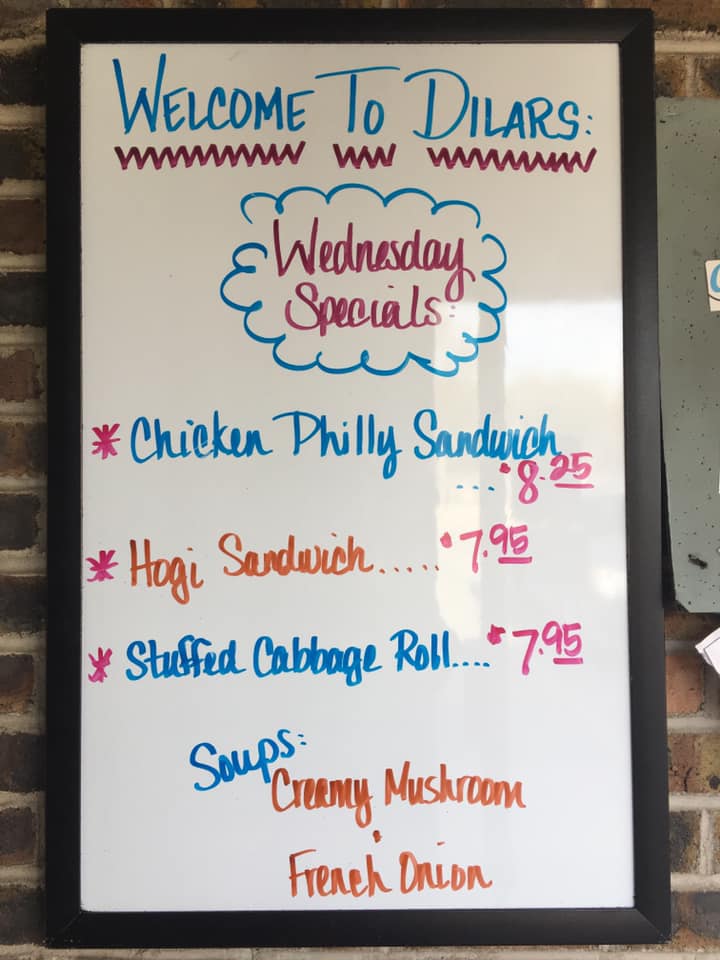 WELCOME TO DILARS:
Wednesday
Specials:
* Chicken Philly Sandwich
... $8.25
* Hogi Sandwich..... $7.95
* Stuffed Cabbage Roll.... $7.95
Soups:
Creamy Mushroom
French Onion